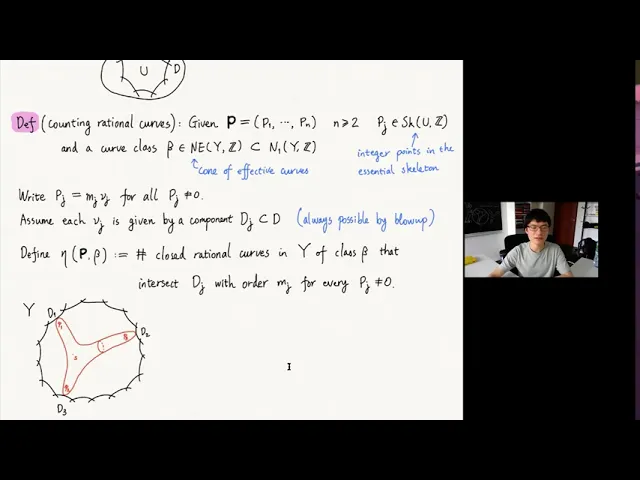 U D
Def (counting rational curves): Given P = (P₁, ⋯, Pₙ) n ≥ 2 Pⱼ ∈ Sk(U, ℤ)
and a curve class β ∈ NE(Y, ℤ) ⊂ N₁(Y, ℤ)
integer points in the
essential skeleton
cone of effective curves
Write Pⱼ = mⱼ vⱼ for all Pⱼ ≠ 0.
Assume each vⱼ is given by a component Dⱼ ⊂ D (always possible by blowup)
Define η(P, β) := # closed rational curves in Y of class β that
intersect Dⱼ with order mⱼ for every Pⱼ ≠ 0.
Y
D₁
D₂
D₃